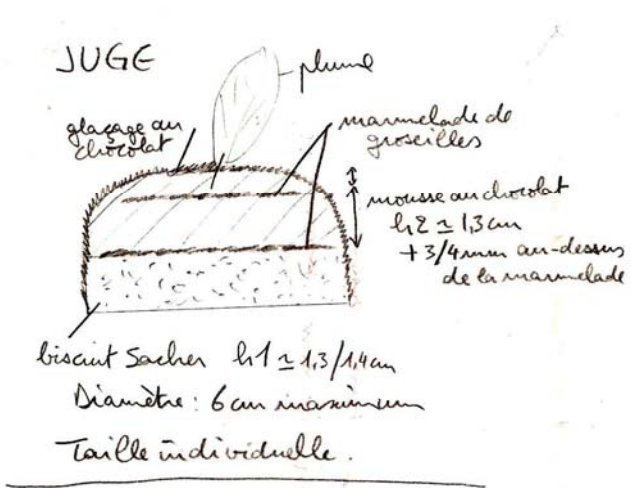 JUGE
plume
glaçage au
chocolat
marmelade de
groseilles
mousse au chocolat
h2 ≃ 1,3 cm
+ 3/4 mm au-dessus
de la marmelade
biscuit Sacher h1 ≃ 1,3/1,4 cm
Diamètre : 6 cm maximum
Taille individuelle.